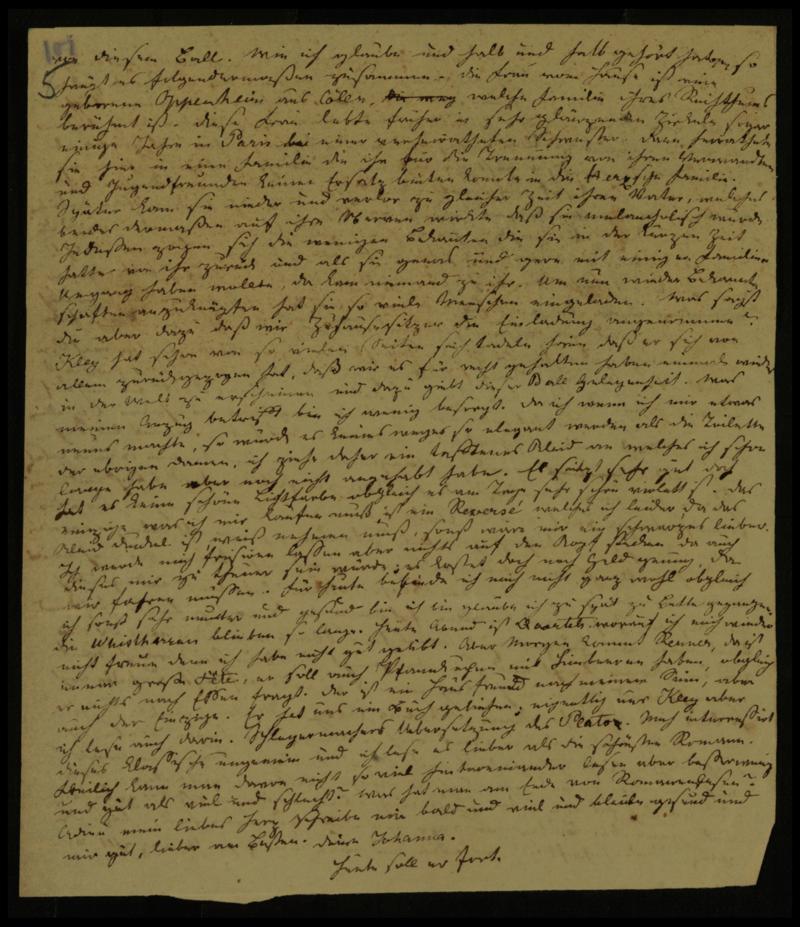 zu diesem Ball. Wie ich glaube und halb und halb gehört habe, so
hängt es folgendermaßen zusammen. die Frau vom Hause ist eine
geborene Oppenheim aus Cölln, welche Familie ihres Reichthums
berühmt ist. diese Frau lebte früher in sehr glänzenden Zirkeln sogar
einige Jahre in Paris bei einer verheiratheten Schwester. dann heirathete
sie hier in eine Familie die ihr für die Trennung von ihren Verwandten
und Jugendfreunden keinen Ersatz bieten konnte in die Herzsche Familie.
Später kam sie nieder und verlor zu gleicher Zeit ihren Vater, welches
beides dermaßen auf ihre Nerven wirkte daß sie melancholisch wurde
Indessen zogen sich die wenigen Bekannten die sie in der kurzen Zeit
hatte von ihr zurück und als sie genas und gern mit einigen Familien
Umgang haben wollte, da kam niemand zu ihr. Um nun wieder Bekannt
schaften anzuknüpfen hat sie so viele Menschen eingeladen. Was sagst
du aber dazu daß wir die Einladung angenommen?
Kley hat schon von so vielen Seiten sich tadeln hören daß er sich von
allem zurückgezogen hat, daß wir es für recht gehalten haben einmal wieder
in der Welt zu erscheinen und dazu giebt dieser Ball Gelegenheit. Was
meinen Anzug betrifft bin ich wenig besorgt. da ich wenn ich mir etwas
neues machte, so würde es keineswegs so elegant werden als die Toilette
der übrigen Damen, ich ziehe daher ein tafftenes Kleid an welches ich schon
lange habe aber noch nicht angehabt habe. Es sitzt sehr gut doch
hat es keine schöne Lichtfarbe obgleich es am Tage sehr schön violett ist. das
einzige was ich mir kaufen muß ist ein welches ich leider da das
Kleid dunkel ist weiß nehmen muß, sonst wäre mir ein schwarzes lieber.
Ich werde mich frisiren lassen aber nichts auf den Kopf da auch
dieses mir zu theuer sein würde, es kostet doch noch Geld genug, da
wir fahren müssen. Für heute befinde ich mich nicht ganz wohl obgleich
ich sonst sehr munter und gesund bin ich glaube ich zu spät zu Bette gegangen,
die Whistherren blieben so lange. Heute Abend ist Quartett worauf ich mich wieder
nicht freue denn ich habe nicht gut geübt. Aber Morgen kommt Renner, da ist
immer große Fête, er soll auch Pfannkuchen mit Himbeeren haben, obgleich
er nichts nach Essen fragt. der ist ein Hausfreund nach meinem Sinn, aber
auch der Einzige. Er hat uns ein Buch geliehen, eigentlich nur Kley aber
ich lese auch darin. Schleyermachers Uebersetzung des Platon. Mich interessirt
dieses Klassische ungemein und ich lese es lieber als die schönsten Romane.
Freilich kann man davon nicht so viel hintereinander lesen aber besser wenig
und gut als viel und schlecht? Was hat man am Ende von Romanenlesen?
Adieu mein liebes Herz schreibe mir bald und viel und bleibe gesund und
mir gut, lieber am Besten. deine Johanna.
Heute soll er fort.